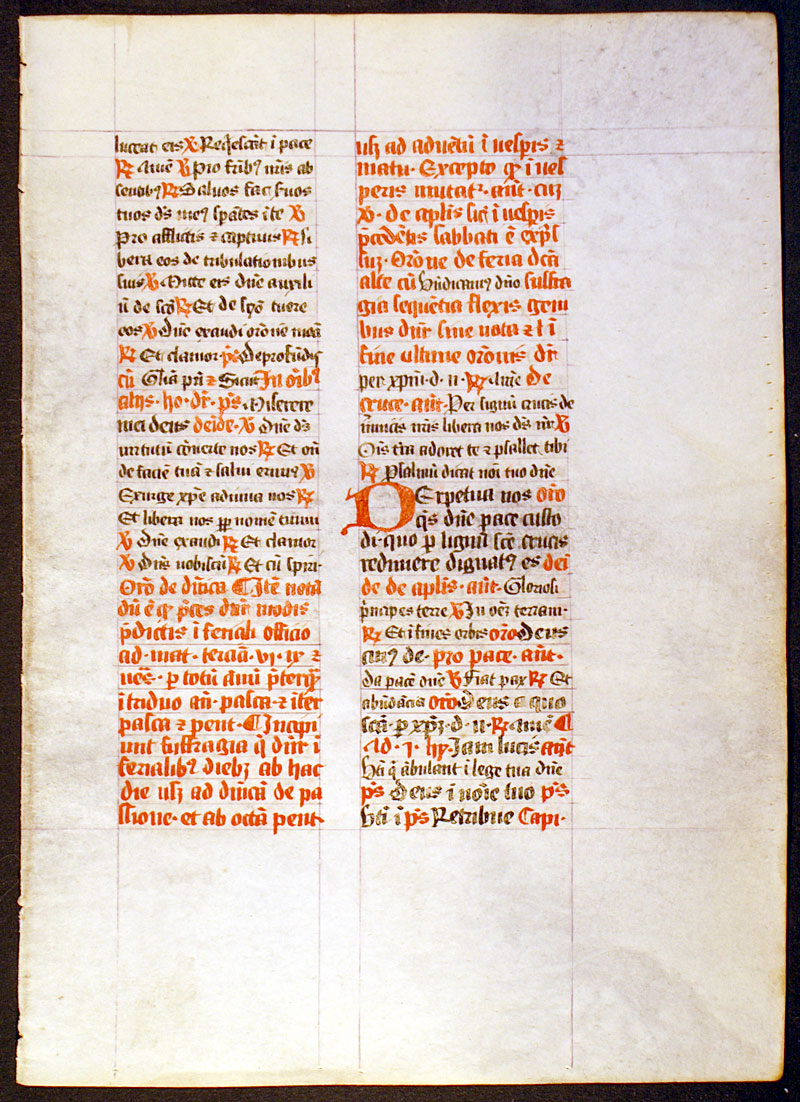 luceat eis ℣ Req̇escāt ī pace
℟ Amē ℣ Pro frībꝰ nr̄is ab
sentibꝰ ℟ Saluos fac suos
tuos ds̄ meꝰ spātes ī te ℣
Pro afflictis ⁊ captiuis ℟ Li
bera eos ds̄ tribulationibus
suis ℣ Mitte eis dn̄e auxili
ū de scō ℟ Et de syō tuere
eos ℣ Dn̄e exaudi orōnē meā
℟ Et clamor p̄s De profūdis
cū Glīa pr̄i ⁊ Sicut In oībꝰ
alijs · ho · dr̄ · p̄s · Miserere
mei deus deīde · ℣ Dn̄e ds̄
uirtutū cōuerte nos ℟ Et on̄
de faciē tuā ⁊ salui erimꝰ ℣
Exurge xp̄e adiuua nos ℟
Et libera nos ꝓp nomē tuum
℣ Dn̄e exaudi ℟ Et clamor
℣ Dn̄s uobiscū ℟ Et cū spirī
Orō de dn̄ica ¶ Itē notā
dū ē qꝫ p̄ces dn̄r modis
p̄dictis ī feriali officio
ad · mat · terciā · vi · ix · ⁊
ues̄ · ꝑ totū annū p̄terqꝫ
ī triduo an̄ · pasca · ⁊ īter
pasca ⁊ pent · ¶ Incipi
unt suffragia q̄ dn̄r ī
ferialibꝰ diebꝫ ab hac
die usqꝫ ad dn̄icā de pa
ssione · et ab octā pent ·
usqꝫ ad aduētū ī uesp̄is ⁊
matu · Excepto qꝫ ī ues
peris mutatᷣ · an̄t · cuꝫ
℣ · de aplis sicꝫ ī uesp̄is
p̄cedētis sabbati ē exp̄s
suꝫ · Orōne de feria dcā
alte cū Bn̄dicamꝰ dn̄o suffra
gia sequētia flexis geni
bus dn̄r sine nota ⁊ ī
fine ultime orōnis dr̄
per xpm̄ · d · n · ℟ Amē De
cruce · an̄t · Per signū crucis de
īimicis nr̄is libera nos ds̄ nr̄ ℣
Ois tr̄a adoret te ⁊ psallet tibi
℟ Psalmū dicat noī tuo dn̄e
PErpetua nos orō
qs̄ dn̄e pace custo
di · quo ꝑ lignū scē crucis
redimere dignatꝰ es deī
de de aplis · an̄t · Gloriosi
p̄ncipes terre ℣ In oēꝫ terram ·
℟ Et ī fines orbis orō Deus
cuiꝰ de · pro pace · an̄t ·
da pacē dn̄e ℣ Fiat pax ℟ Et
abūdācia orō Deus a quo
scā · ꝑ xpꝫ · d · n · ℟ Amē ¶
Ad · j · hy · Jam lucis an̄t
Bt̄i q̄ ābulant ī lege tua dn̄e
p̄s Deus ī noīe tuo p̄s
Bt̄i ī p̄s Retribue Capi ·